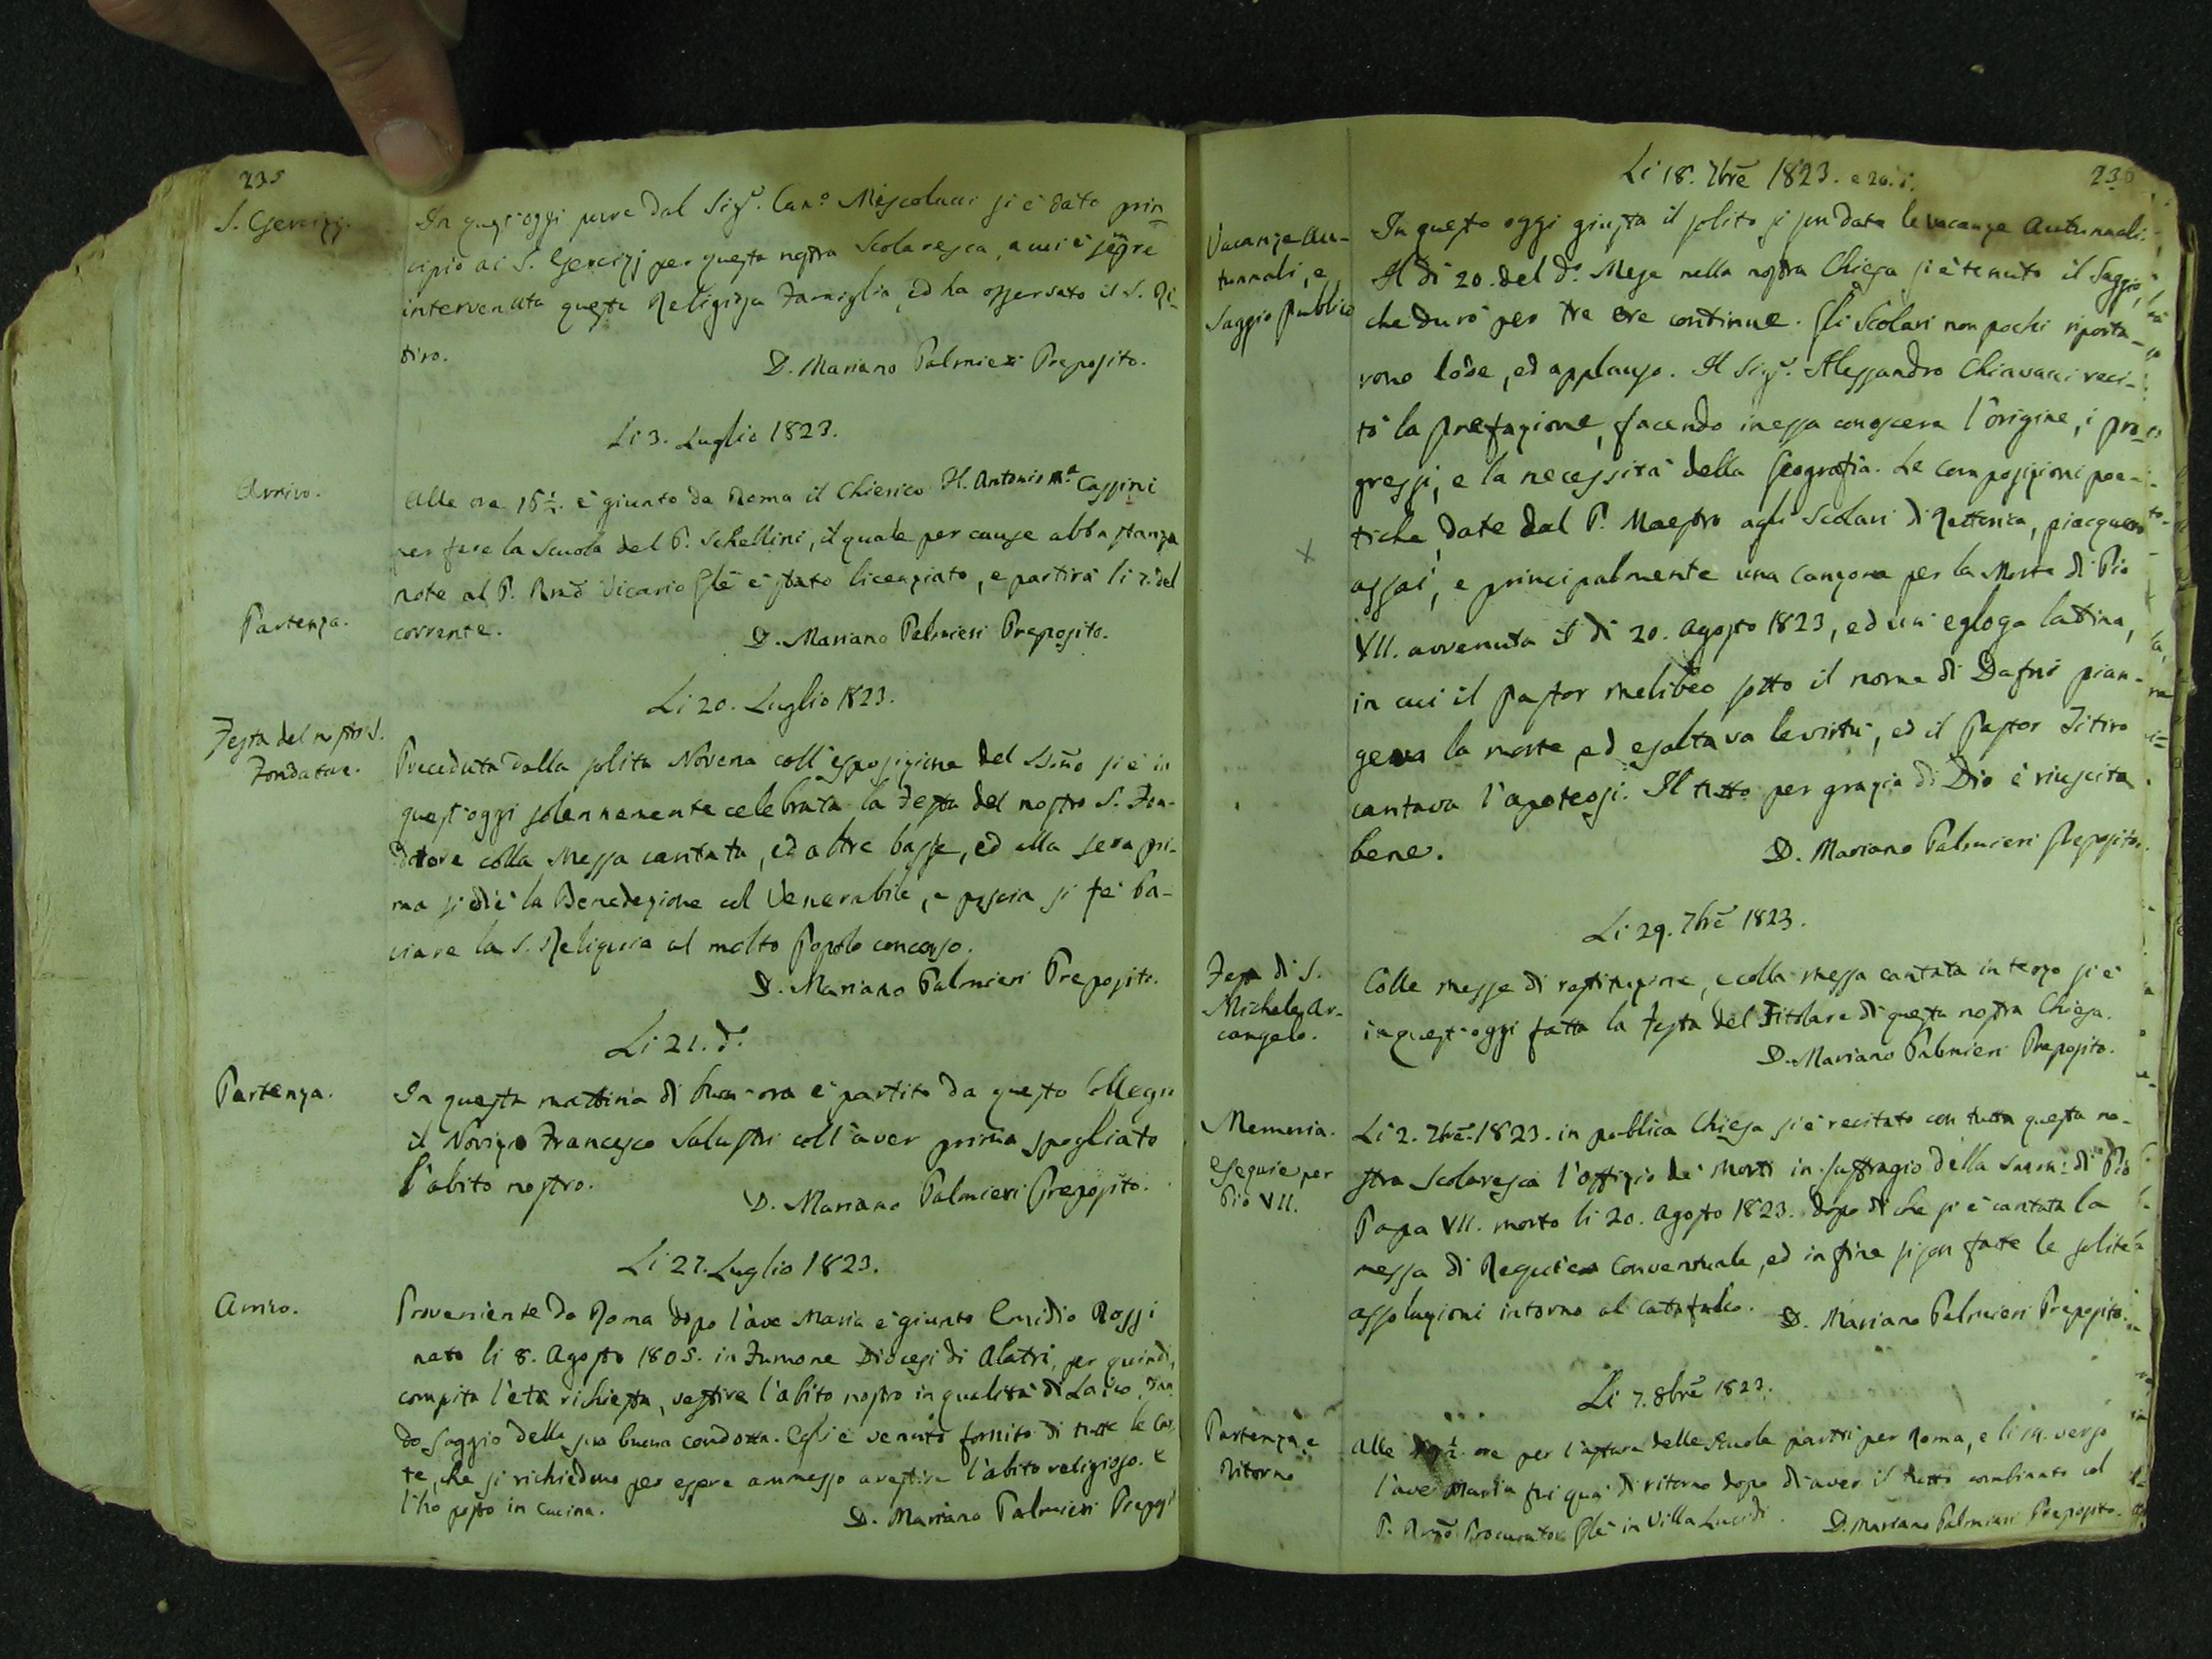 235
S. Esercizj.
In quest'oggi pure dal Sigr. Cano. Miscolucci si è dato prin
cipio ai S. Esercizj per questa nostra Scolaresca, a cui è sempre
intervenuta questa Religiosa Famiglia, ed ha osservato il S. Ri-
tiro.
D. Mariano Palmieri Preposito.
Li 3. Luglio 1823.
Arrivo.
Alle ore 15½. è giunto da Roma il Chierico H. Antonio Ma. Cassini
per fare la Scuola del P. Schellini, il quale per cause abbastanza
note al P. Rmo Vicario Gle è stato licenziato, e partirà li 7. del
Partenza.
corrente.
D. Mariano Palmieri Preposito.
Li 20. Luglio 1823.
Festa del nostro S.
Fondatore.
Preceduta dalla solita Novena coll'esposizione del SSmo si è in
quest'oggi solennemente celebrata la Festa del nostro S. Fon-
datore colla Messa cantata, ed altre basse, ed alla sera pri-
ma si diè la Benedezione col Venerabile, e poscia si fè ba-
ciare la S. Reliquia al molto Popolo concorso.
D. Mariano Palmieri Preposito.
Li 21. do.
Partenza.
In questa mattina di buon'ora è partito da questo Collegio
il Novizio Francesco Salustri coll'aver prima spogliato
l'abito nostro.
D. Mariano Palmieri Preposito.
Li 27. Luglio 1823.
Arrivo.
Proveniente da Roma dopo l'ave Maria è giunto Emidio Rossi
nato li 8. Agosto 1805. in Fumone Diocesi di Alatri, per quindi,
compita l'età richiesta, vestire l'abito nostro in qualità di Laico, dan
do saggio della sua buona condotta. Egli è venuto fornito di tutte le Car
te, che si richiedono per essere ammesso a vestire l'abito religioso. E
l'ho posto in Cucina.
D. Mariano Palmieri Prepos
Li 18. 7bre 1823. e 20. d.
236
Vacanze Au-
tunnali, e
Saggio Publico
In questo oggi giusta il solito si son date le vacanze Autunnali.
Il dì 20. del do. Mese nella nostra Chiesa si è tenuto il Saggio,
che durò per tre ore continue. Gli Scolari non pochi riporta-
rono lode, ed applauso. Il Sigr. Alessandro Chiavacci reci-
tò la prefazione, facendo in essa conoscere l'origine, i pro-
gressi, e la necessità della Geografia. Le composizioni poe-
tiche, date dal P. Maestro agli Scolari di Rettorica, piacquero
assai, e principalmente una canzone per la Morte di Pio
VII. avvenuta il dì 20. Agosto 1823, ed un'egloga latina,
in cui il Pastor Melibeo sotto il nome di Dafni pian-
geva la morte, ed esaltava le virtù, ed il Pastor Titiro
cantava l'apoteosi. Il tutto per grazia di Dio è riuscito
bene.
D. Mariano Palmieri Preposito.
Li 29. 7bre 1823.
Festa di S.
Michele Ar-
cangelo.
Colle messe di restituzione, e colla messa cantata in terzo si è
in quest'oggi fatta la Festa del Titolare di questa nostra Chiesa.
D. Mariano Palmieri Preposito.
Memoria.
Esequie per
Pio VII.
Li 2. 7bre. 1823. in publica Chiesa si è recitato con tutta questa no-
stra Scolaresca l'offizio de' Morti in suffragio della di Pio
Papa VII. morto li 20. Agosto 1823. dopo di che si è cantata la
messa di Requiem Conventuale, ed in fine si son fatte le solite
assoluzioni intorno al Catafalco. D. Mariano Palmieri Preposito.
Li 7. 8bre 1823.
Partenza, e
Ritorno
Alle ore per l'apertura delle Scuole partii per Roma, e li 19. verso
l'ave Maria fui quà di ritorno dopo di aver il tutto combinato col
P. Rmo Procurator Gle in Villa Lucidi. D. Mariano Palmieri Preposito.